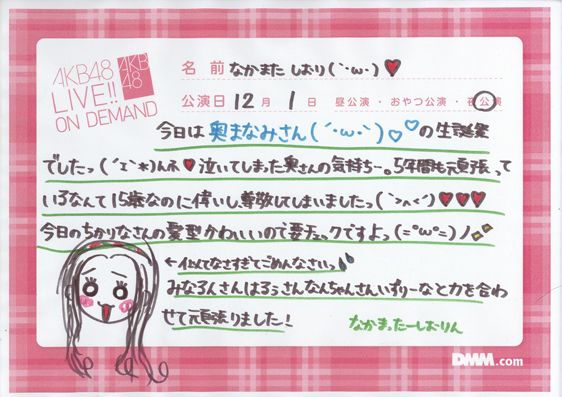 AKB48
LIVE!!
ON DEMAND
AKB
48
名 前 なかまた しおり(｀・ω・)♥
公演日 12 月 1 日 昼公演・おやつ公演・夜公演
今日は 奥まなみさん(´・ω・`)♡♡の生誕祭
でしたっ(´エ`*)んふ♥泣いてしまった奥さんの気持ちー。5年間も頑張って
いるなんて15歳なのに偉いし尊敬してしまいましたっ(`>∧<´)♥♥♥
今日のちかりなさんの髪型かわいいので要チェックですよっ(=°ω°=)ノ
←似てなさすぎてごめんなさいっ
みなるんさんはるぅさんなんちゃんさんいずりーなと力を合わ
せて頑張りました!
なかまったーしおりん
DMM.com